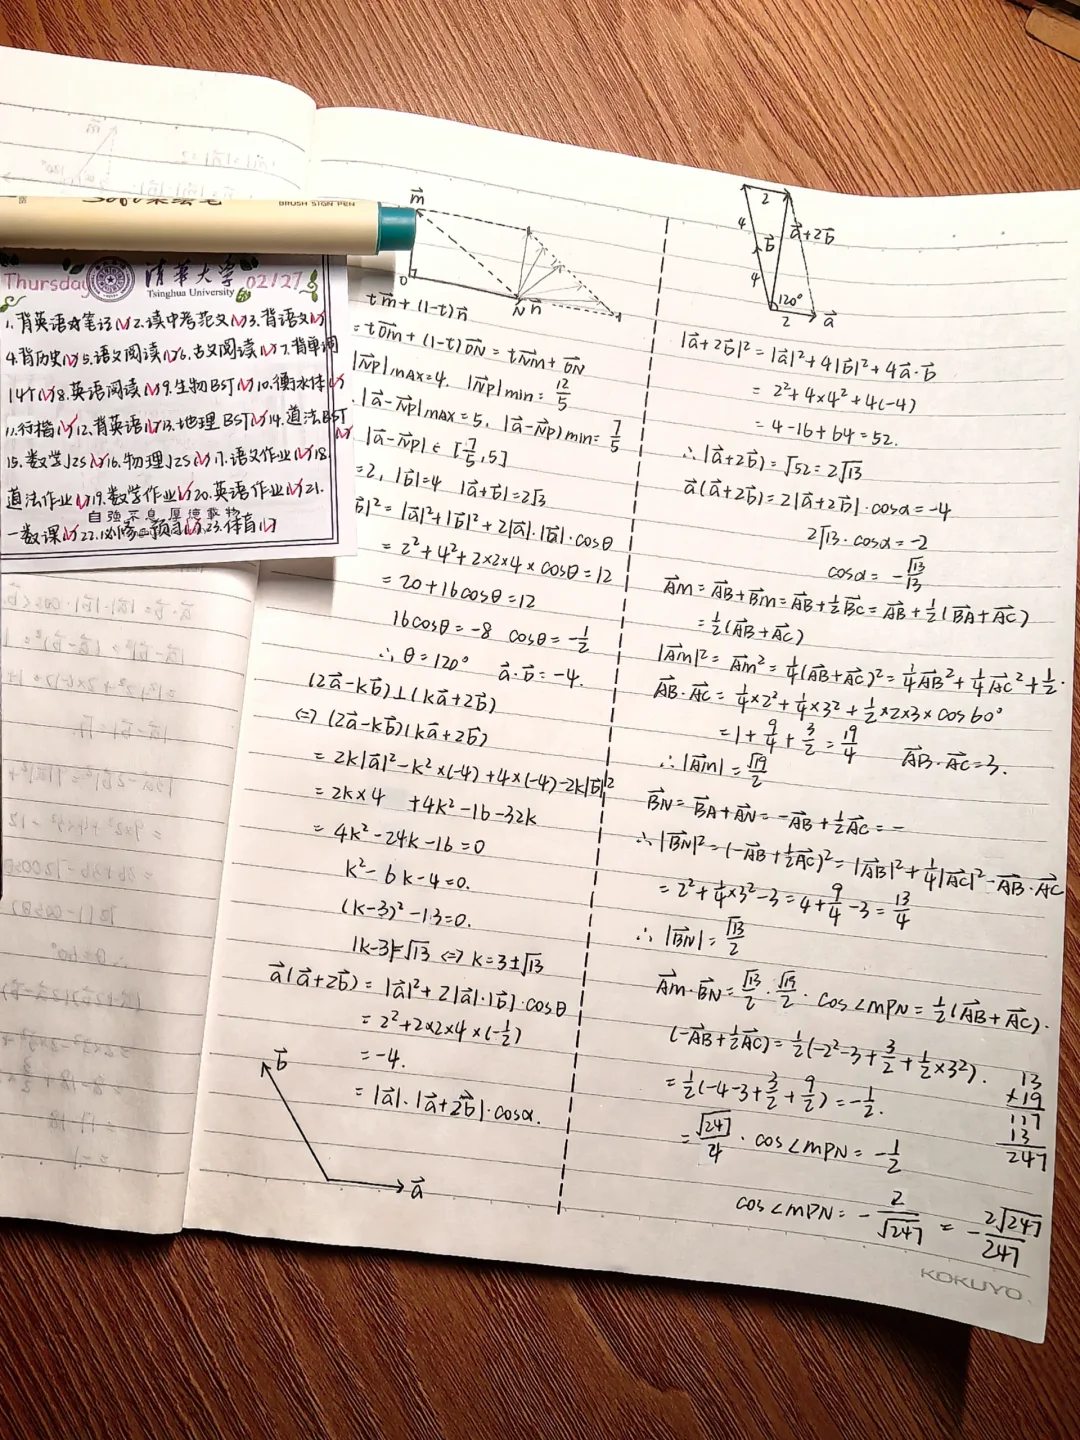 BRUSH SIGN PEN
Thursday 清華大学 02/27
Tsinghua University
1.背英语笔记 2.读中考范文 3.背语文
4.背历史 5.语文阅读 6.古文阅读 7.背单词
14个 8.英语阅读 9.生物BST 10.衡水体
11.行楷 12.背英语 13.地理BST 14.道法BST
15.数学JZS 16.物理JZS 17.语文作业 18.
道法作业 19.数学作业 20.英语作业 21.
自強不息 厚德載物
一数课 22.必修二预习 23.体育
m⃗
O N n⃗
tm⃗+(1-t)n⃗
=tOm⃗+(1-t)ON⃗=tNm⃗+ON⃗
|NP⃗|max=4. |NP⃗|min=12/5
|a⃗-NP⃗|max=5, |a⃗-NP⃗|min=7/5
|a⃗-NP⃗|∈[7/5,5]
=2, |b⃗|=4 |a⃗+b⃗|=2√3
b⃗|²=|a⃗|²+|b⃗|²+2|a⃗|·|b⃗|·cosθ
=2²+4²+2×2×4×cosθ=12
=20+16cosθ=12
16cosθ=-8 cosθ=-1/2
∴θ=120° a⃗·b⃗=-4.
(2a⃗-kb⃗)⊥(ka⃗+2b⃗)
⇔(2a⃗-kb⃗)(ka⃗+2b⃗)
=2k|a⃗|²-k²×(-4)+4×(-4)-2k|b⃗|²
=2k×4 +4k²-16-32k
=4k²-24k-16=0
k²-6k-4=0.
(k-3)²-13=0.
|k-3|=√13 ⇔ k=3±√13
a⃗(a⃗+2b⃗)=|a⃗|²+2|a⃗|·|b⃗|·cosθ
=2²+2×2×4×(-1/2)
=-4.
=|a⃗|·|a⃗+2b⃗|·cosα.
b⃗
a⃗
2
4 b⃗ a⃗+2b⃗
4
120°
2 a⃗
|a⃗+2b⃗|²=|a⃗|²+4|b⃗|²+4a⃗·b⃗
=2²+4×4²+4(-4)
=4-16+64=52.
∴|a⃗+2b⃗|=√52=2√13
a⃗(a⃗+2b⃗)=2|a⃗+2b⃗|·cosα=-4
2√13·cosα=-2
cosα=-√13/13
Am⃗=AB⃗+Bm⃗=AB⃗+1/2BC⃗=AB⃗+1/2(BA⃗+AC⃗)
=1/2(AB⃗+AC⃗)
|Am⃗|²=Am⃗²=1/4(AB⃗+AC⃗)²=1/4AB⃗²+1/4AC⃗²+1/2·
AB⃗·AC⃗=1/4×2²+1/4×3²+1/2×2×3×cos60°
=1+9/4+3/2=19/4 AB⃗·AC⃗=3.
∴|Am⃗|=√19/2
BN⃗=BA⃗+AN⃗=-AB⃗+1/2AC⃗=-
∴|BN⃗|²=(-AB⃗+1/2AC⃗)²=|AB⃗|²+1/4|AC⃗|²-AB⃗·AC⃗
=2²+1/4×3²-3=4+9/4-3=13/4
∴|BN⃗|=√13/2
Am⃗·BN⃗=√13/2·√19/2·cos∠MPN=1/2(AB⃗+AC⃗)·
(-AB⃗+1/2AC⃗)=1/2(-2²-3+3/2+1/2×3²).
=1/2(-4-3+3/2+9/2)=-1/2.
=√247/4·cos∠MPN=-1/2
cos∠MPN=-2/√247=-2√247/247
13
×19
117
13
247
KOKUYO